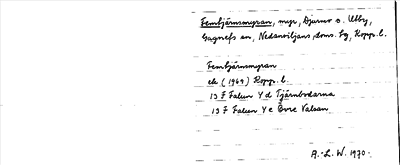 Femtjärnsmyran, myr, Djurmo o. Ulvby,
Gagnefs sn, Nedansiljans doms. fg, Kopp. l.
Femtjärnsmyran
ek (1969) Kopp. l.
13 F Falun Y d Tjärnbodarna
13 F Falun Y e Övre Valsan
A.-L. W. 1970.